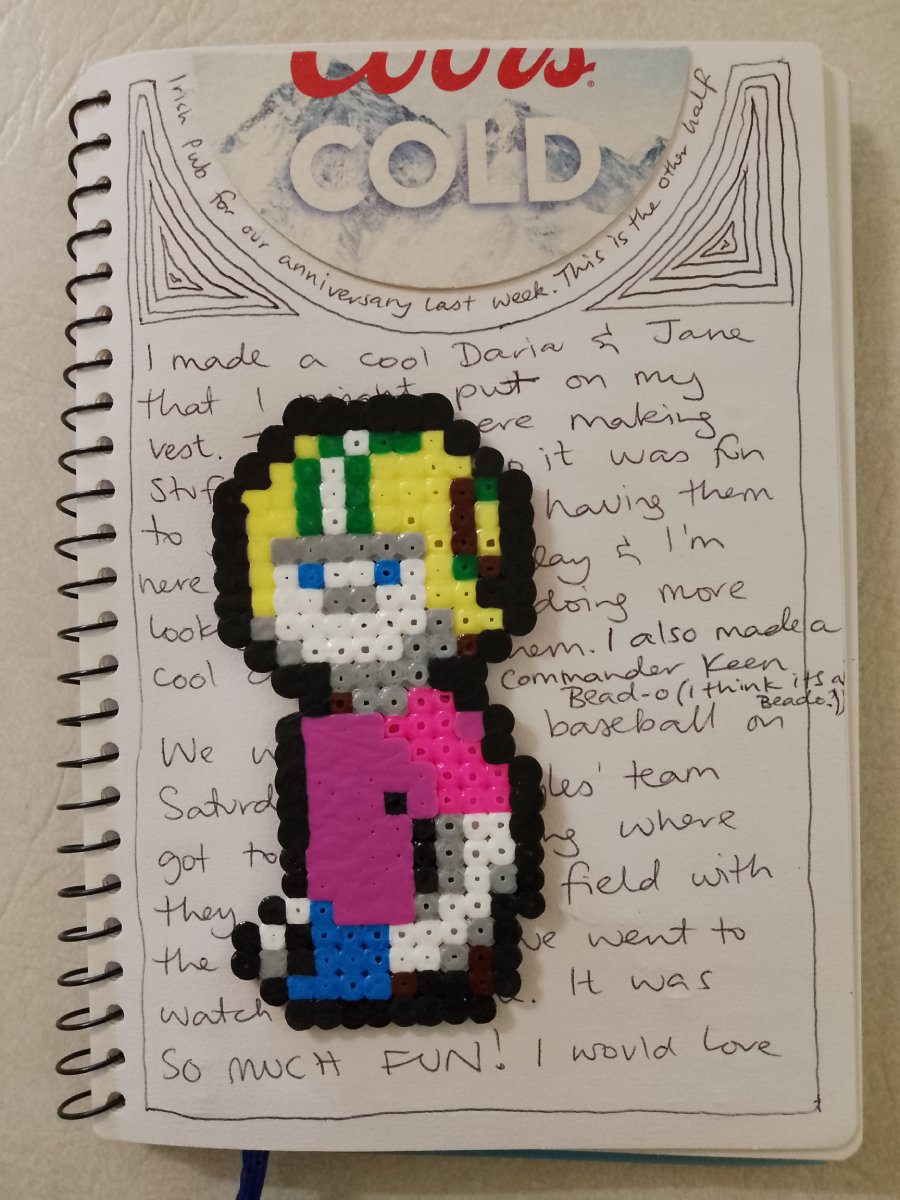 Coors
COLD
Irish pub for our anniversary last week. This is the other half
I made a cool Daria & Jane
that I might put on my
vest. ere making
stuf it was fun
to having them
here lay & I'm
look doing more
cool hem. I also made a
Commander Keen
Bead-o (i think its a
Beado?)
We w baseball on
Saturd les' team
got to ng where
they field with
the we went to
watch . It was
SO MUCH FUN! I would love